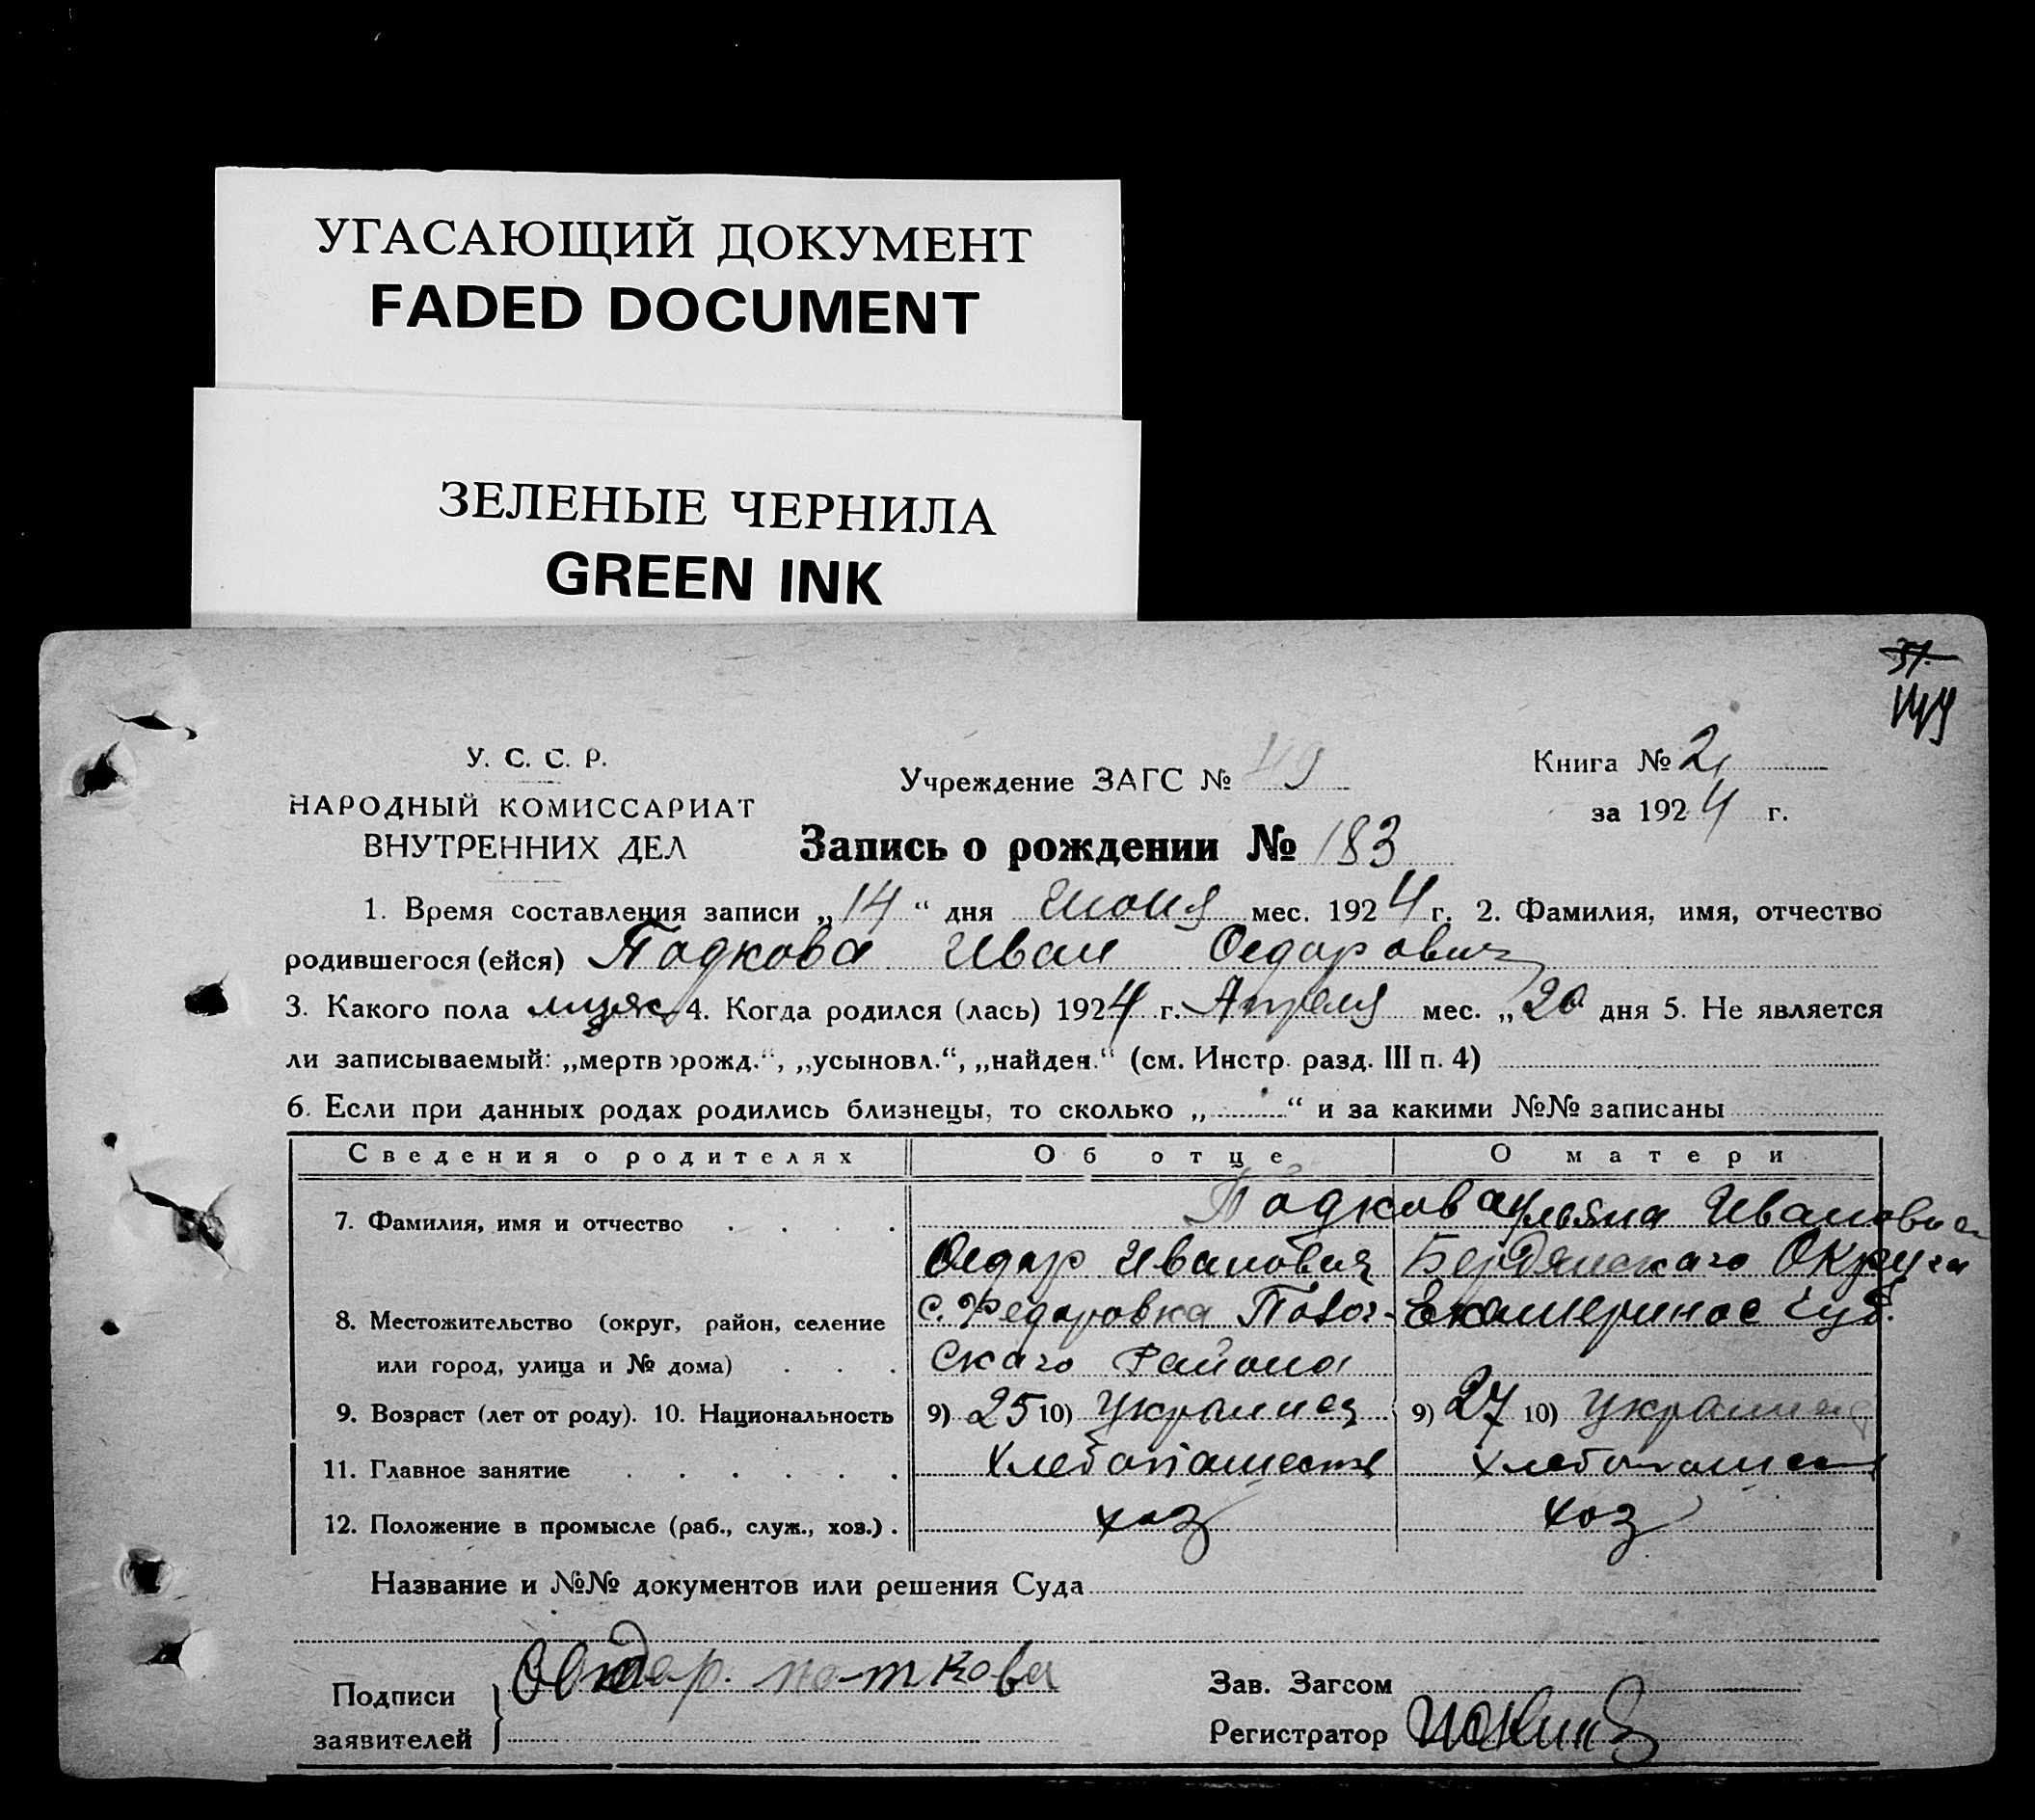 УГАСАЮЩИЙ ДОКУМЕНТ
FADED DOCUMENT
ЗЕЛЕНЫЕ ЧЕРНИЛА
GREEN INK
37.
У. С. С. Р.
НАРОДНЫЙ КОМИССАРИАТ
ВНУТРЕННИХ ДЕЛ
Учреждение ЗАГС № 49
Книга № 2
за 1924 г.
Запись о рождении № 183
1. Время составления записи „14“ дня Июня мес. 1924 г. 2. Фамилия, имя, отчество
родившегося (ейся) Падкова Иван Федарович
3. Какого пола мужс 4. Когда родился (лась) 1924 г. Апреля мес. „20 дня 5. Не является
ли записываемый: „мертворожд.“, „усыновл.“, „найден.“ (см. Инстр. разд. III п. 4)
6. Если при данных родах родились близнецы, то сколько „ “ и за какими №№ записаны
Сведения о родителях Об отце О матери
7. Фамилия, имя и отчество . . . . Падкова Ульяна Ивановна
Федар Иванович Бердянскаго Округа
8. Местожительство (округ, район, селение с. Федаровка Екатеринос губ.
или город, улица и № дома) . . . скаго Района
9. Возраст (лет от роду). 10. Национальность 9) 25 10) Украинец 9) 27 10) Украинец
11. Главное занятие . . . . . . Хлебопашеств Хлебопашеств
12. Положение в промысле (раб., служ., хоз.) . хоз хоз
Название и №№ документов или решения Суда
Подписи
заявителей
паткова
Зав. Загсом
Регистратор